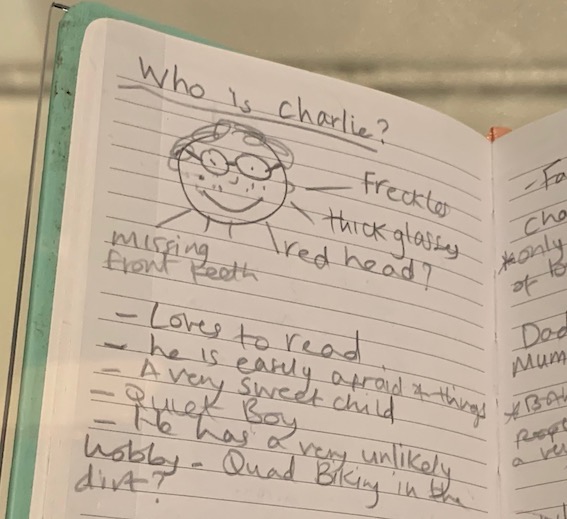 Who is Charlie?
Freckles
thick glasses
red head?
missing
front teeth
- Loves to read
- he is easily afraid of things
- A very sweet child
- Quiet Boy
- He has a very unlikely
hobby - Quad Biking in the
dirt?
- Fa
Cha
*only
of
Dad
Mum
a ve